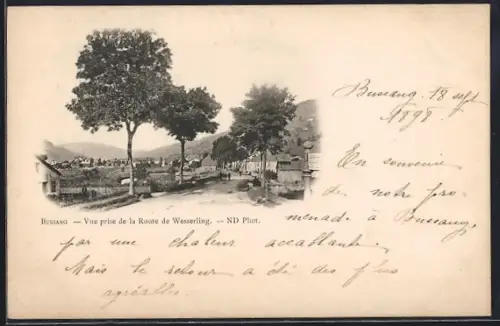 Bussang. 18 sept
1898.
En souvenir
de notre pro-
menade à Bussang,
BUSSANG — Vue prise de la Route de Wesserling. — ND Phot.
par une chaleur accablante.
Mais le retour a été des plus
agréables.